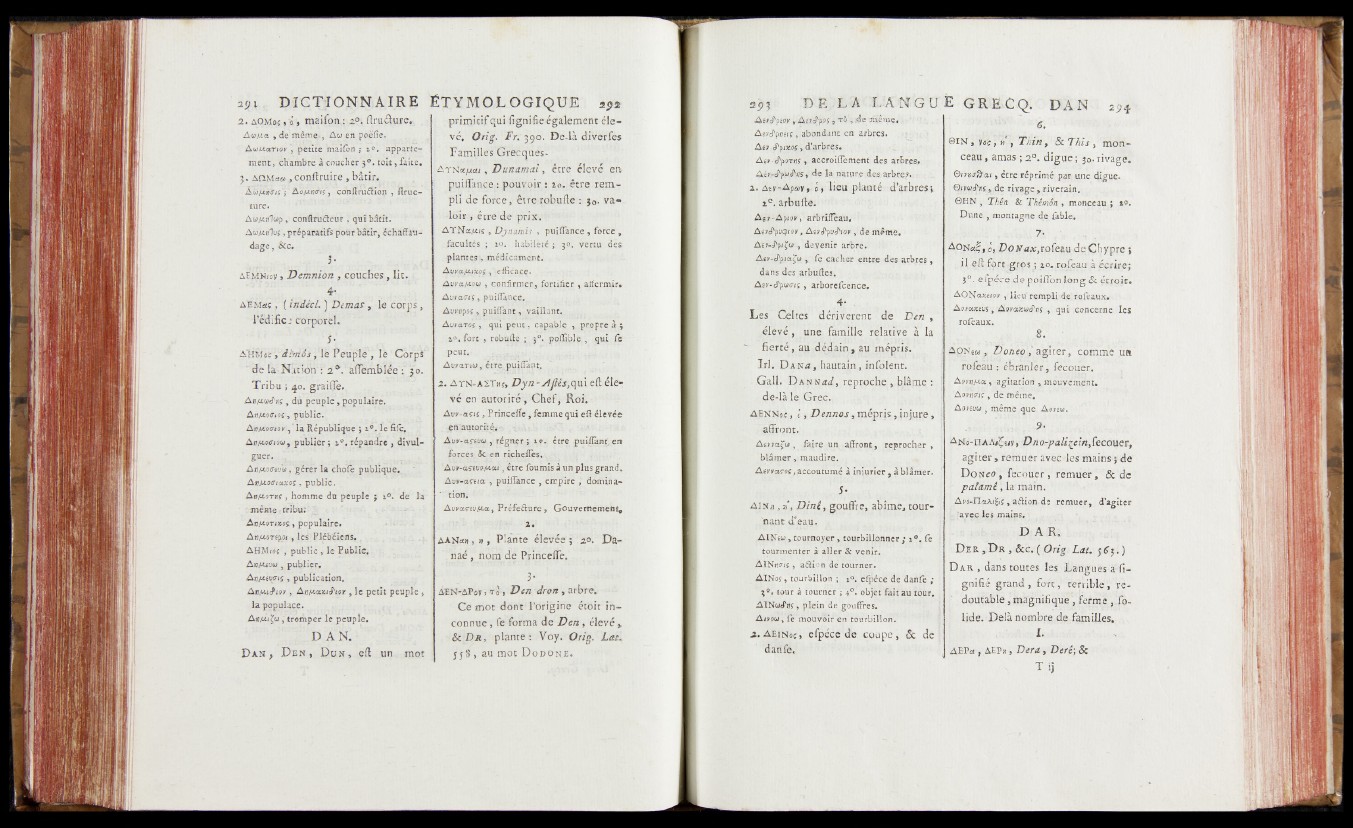 291 DICTIONNAIRE ÉTYMOLOGIQUE 292
2. ΔΩΜος, ὁ, maiſon : 2°. ſtructure.
Δωμα, de même, Δω en poéſie.
Δωματιον, petite maiſon ; 2°. apparte-
ment, chambre à coucher 3°. toît, faîte.
3. ΔΩΜαω, conſtruire, bâtir.
Δωμησις ; Δομησις, conſtruction, ſtruc-
ture.
Δωμητωρ, conſtructeur, qui bâtit.
préparatifs pour bâtir, échaffau-
dage, &c.
3.
ΔΕΜΝιον, Demnion, couches, lit.
4.
ΔΕΜας, (indécl.) Demas, le corps,
l'édifice corporel.
5.
ΔΗΜος, dêmós, le Peuple, le Corps
de la Nation : 2°. aſſemblée : 30.
Tribu ; 40. graiſſe.
Δημωδης, du peuple, populaire.
Δημοσιος, public.
Δημοσιον, la République ; 2°. le fiſc.
Δημοσιοω, publier ; 2°. répandre, divul-
guer.
Δημοσευω, gérer la choſe publique.
Δημοσιακος, public.
Δημοτης, homme du peuple ; 2°. de la
même tribu.
Δημοτικος, populaire.
Δημοτεροι, les Plébéiens.
ΔΗΜιος, public, le Public.
Δημευω, publier.
Δημευσις, publication.
Δημιδιον, Δημακιδιον, le petit peuple,
la populace.
Δημιζω, tromper le peuple.
DAN.
DAN, DEN, DUN, eſt un mot
primitif qui ſignifie également éle-
vé. Orig. Fr. 390. De-là diverſes
Familles Grecques.
ΔΥΝαμαι, Dunamai, être élevé en
puiſſance : pouvoir : 20. être rem-
pli de force, être robuſte : 30. va-
loir, être de prix.
ΔΥΝαμις, Dynamis, puiſſance, force,
facultés ; 20. habileté ; 30. vertu des
plantes, médicament.
Δυναμικος, efficace.
Δυναμοω, confirmer, fortifier, affermir.
Δυνασις, puiſſance.
Δυνερος, puiſſant, vaillant.
Δυνατος, qui peut, capable, propre à ;
2°. fort, robuſte ; 3°. poſſible, qui ſe
peut.
Δυνατεω, être puiſſant.
2. ΔΥΝ-ΑΣΤης, Dyn-Aſtès, qui eſt éle-
vé en autorité, Chef, Roi.
Δυν-αστις, Princeſſe, femme qui eſt élevée
en autorité.
Δυν-αστευω, régner ; 2°. être puiſſant en
forces & en richeſſes.
Δυν-αστευομαι, être ſoumis à un plus grand.
Δυν-αστεια, puiſſance, empire, domina-
tion.
Δυναστευμα, Préfecture, Gouvernement.
2.
ΔΑΝαη, η, Plante élevée ; 20. Da-
naé, nom de Princeſſe.
3.
ΔΕΝ-ΔΡον, τὸ, Den dron, arbre.
Ce mot dont l'origine étoit in-
connue, ſe forma de Den, élevé,
& DR, plante : Voy. Orig. Lat.
558, au mot DODONE.
293 DE LA LANGUE GRECQ. DAN 294
Δενδριον, Δενδρος, τὸ, de même.
Δενδροεις, abondant en arbres.
Δενδρικος, d'arbres.
Δενδροτης, accroiſſement des arbres.
Δενδρωδης, de la nature des arbres.
2. Δεν-Δρων, ὁ, lieu planté d'arbres ;
2°. arbuſte.
Δεν-Δριον, arbriſſeau.
Δενδρυφιον, Δενδρυδιον, de même.
Δενδριζω, devenir arbre.
Δενδριαζω, ſe cacher entre des arbres,
dans des arbuſtes.
Δενδρωσις, arboreſcence.
4.
Les Celtes dériverent de Den,
élevé, une famille relative à la
fierté, au dédain, au mépris.
Irl. DANA, hautain, inſolent.
Gall. DANNAd, reproche, blâme :
de-là le Grec.
ΔΕΝΝος, ὁ, Dennos, mépris, injure,
affront.
Δενναζω, faire un affront, reprocher,
blâmer, maudire.
Δενναστος, accoutumé à injurier, à blâmer.
5.
ΔΙΝη, η, Dinê, gouffre, abîme, tour-
nant d'eau.
ΔΙΝεω, tournoyer, tourbillonner ; 2°. ſe
tourmenter à aller & venir.
ΔΙΝησις, action de tourner.
ΔΙΝος, tourbillon ; 2°. eſpéce de danſe ;
3°. tour à tourner ; 4°. objet fait au tour.
ΔΙΝωδης, plein de gouffres.
Δινοω, ſe mouvoir en tourbillon.
2. ΔΕΙΝος, eſpéce de coupe, & de
danſe.
6.
ΘΙΝ, νος, ἡ, Thin, & This, mon-
ceau, amas ; 2°. digue ; 30. rivage.
Θινεσθαι, être réprimé par une digue.
Θινωδης, de rivage, riverain.
ΘΗΝ, Thên & Thêmôn, monceau ; 2°.
Dune, montagne de ſable.
7.
ΔΟΝαξ, ὁ, DONax, roſeau de Chypre ;
il eſt fort gros ; 20. roſeau à écrire ;
3°. eſpéce de poiſſon long & étroit.
ΔΟΝακειον, lieu rempli de roſeaux.
Δονακευς, Δονακωδης, qui concerne les
roſeaux.
8.
ΔΟΝεω, Doneo, agiter, comme un
roſeau : ébranler, ſecouer.
Δονημα, agitation, mouvement.
Δονησις, de même.
même que Δονεω.
9.
ΔΝο-ΠΑΛιζειν, Dno-palizein, ſecouer,
agiter, remuer avec les mains ; de
DONEO, ſecouer, remuer, & de
palamé, la main.
Δνο-Παλιξις, action de remuer, d'agiter
avec les mains.
DAR.
DER, DR, &c. (Orig. Lat. 563.)
DAR, dans toutes les Langues a ſi-
gnifié grand, fort, terrible, re-
doutable, magnifique, ferme, ſo-
lide. Delà nombre de familles.
I.
ΔΕΡα, ΔΕΡη, Dera, Derê ; &
T ij